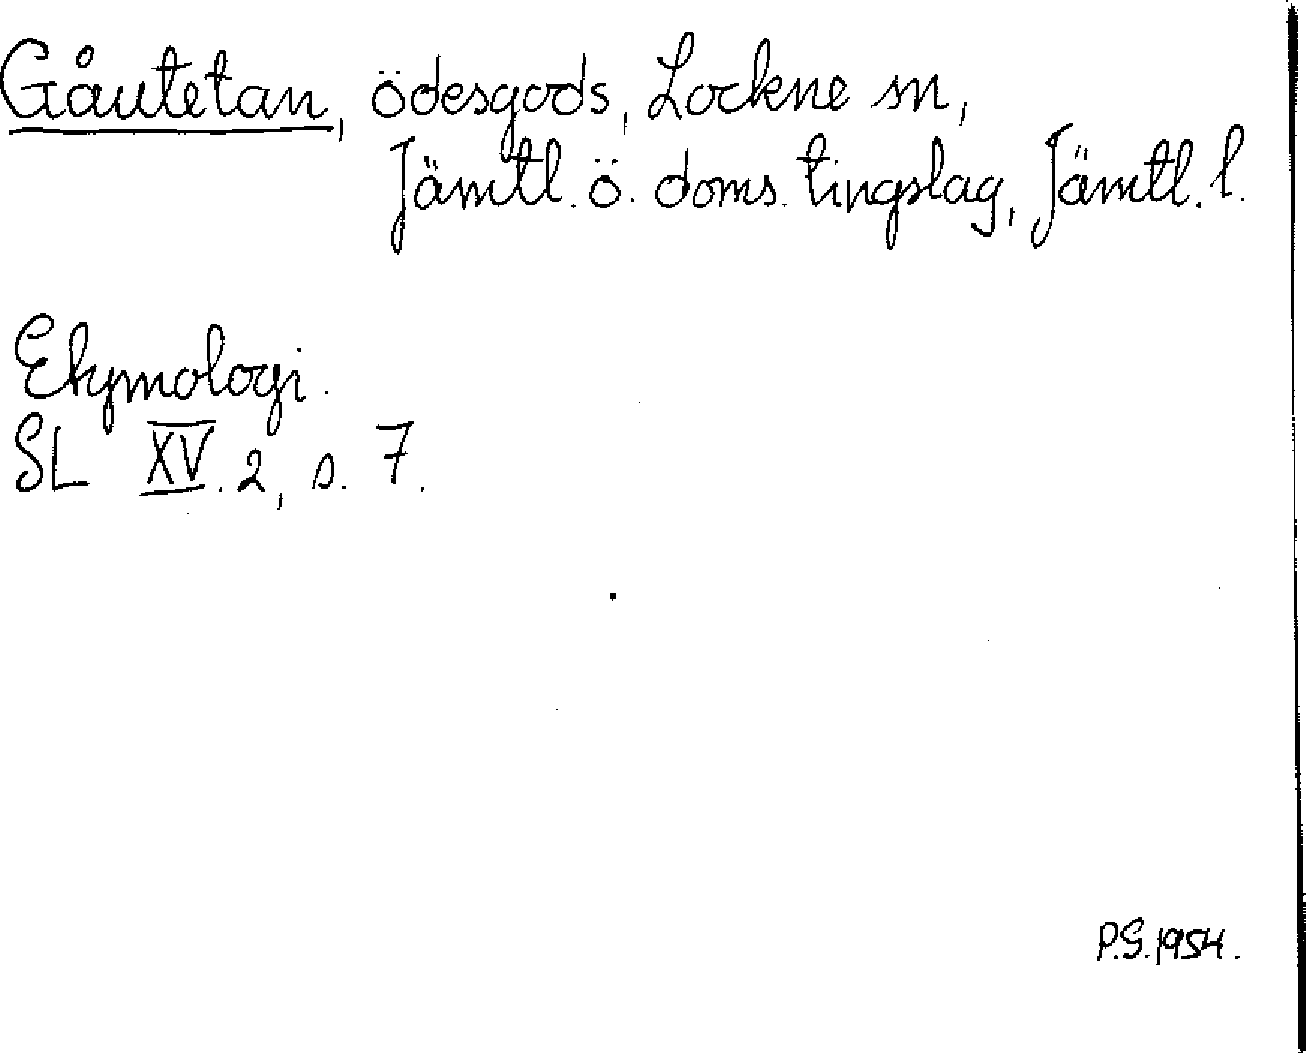 Gåutetan, ödesgods, Lockne sn,
Jämtl. ö. doms. tingslag, Jämtl. l.
Etymologi.
SL XV. 2, s. 7.
P.S. 1954.